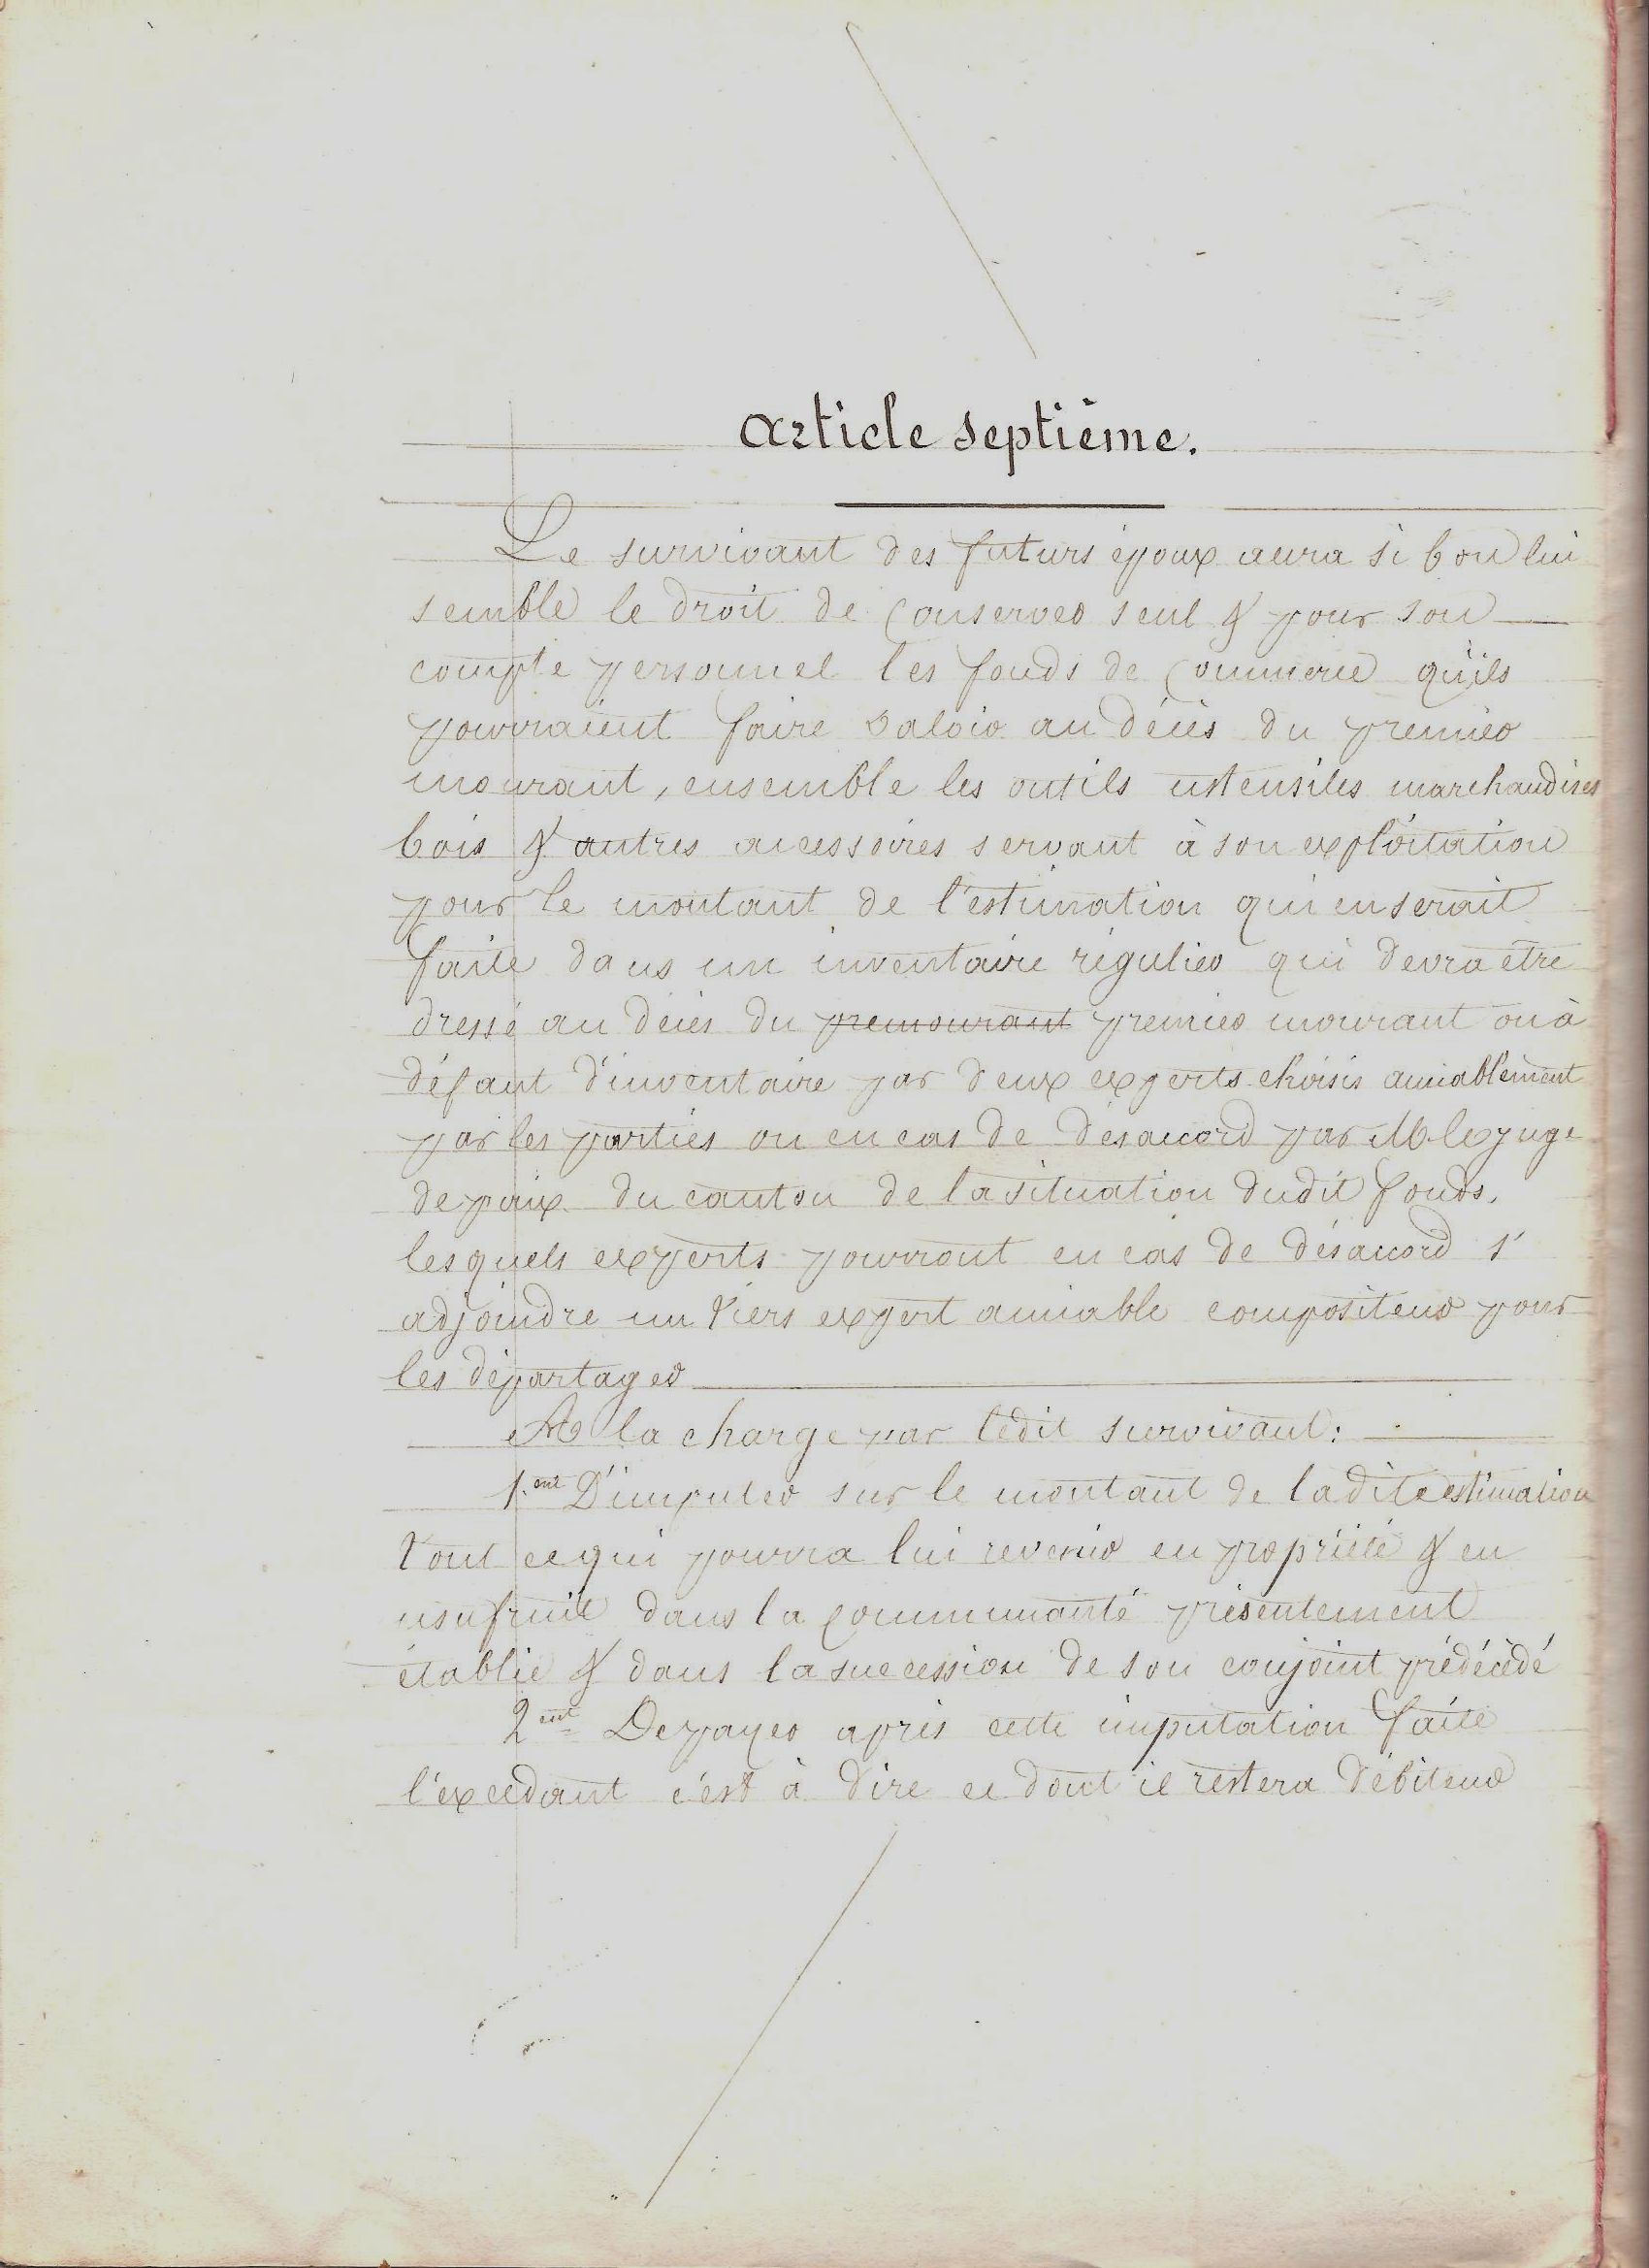 Article septième.
Le survivant des futurs époux aura si bon lui
semble le droit de conserver seul & pour son
compte personnel les fonds de commerce qu'ils
pourraient faire valoir au décès du premier
mourant, ensemble les outils ustensiles marchandises
bois & autres accessoires servant à son exploitation
pour le montant de l'estimation qui en serait
faite dans un inventaire régulier qui devra être
dressé au décès du premourant premier mourant ou à
défaut d'inventaire par deux experts choisis amiablement
par les parties ou en cas de désaccord par M le juge
de paix du canton de la situation dudit fonds,
lesquels experts pourront en cas de désaccord s'
adjoindre un tiers expert amiable compositeur pour
les départager
A la charge par ledit survivant:
1.ent D'imputer sur le montant de ladite estimation
tout ce qui pourra lui revenir en propriété & en
usufruit dans la communauté présentement
établie & dans la succession de son conjoint prédécédé
2ent De payer après cette imputation faite
l'excédant c'est à dire ce dont il restera débiteur